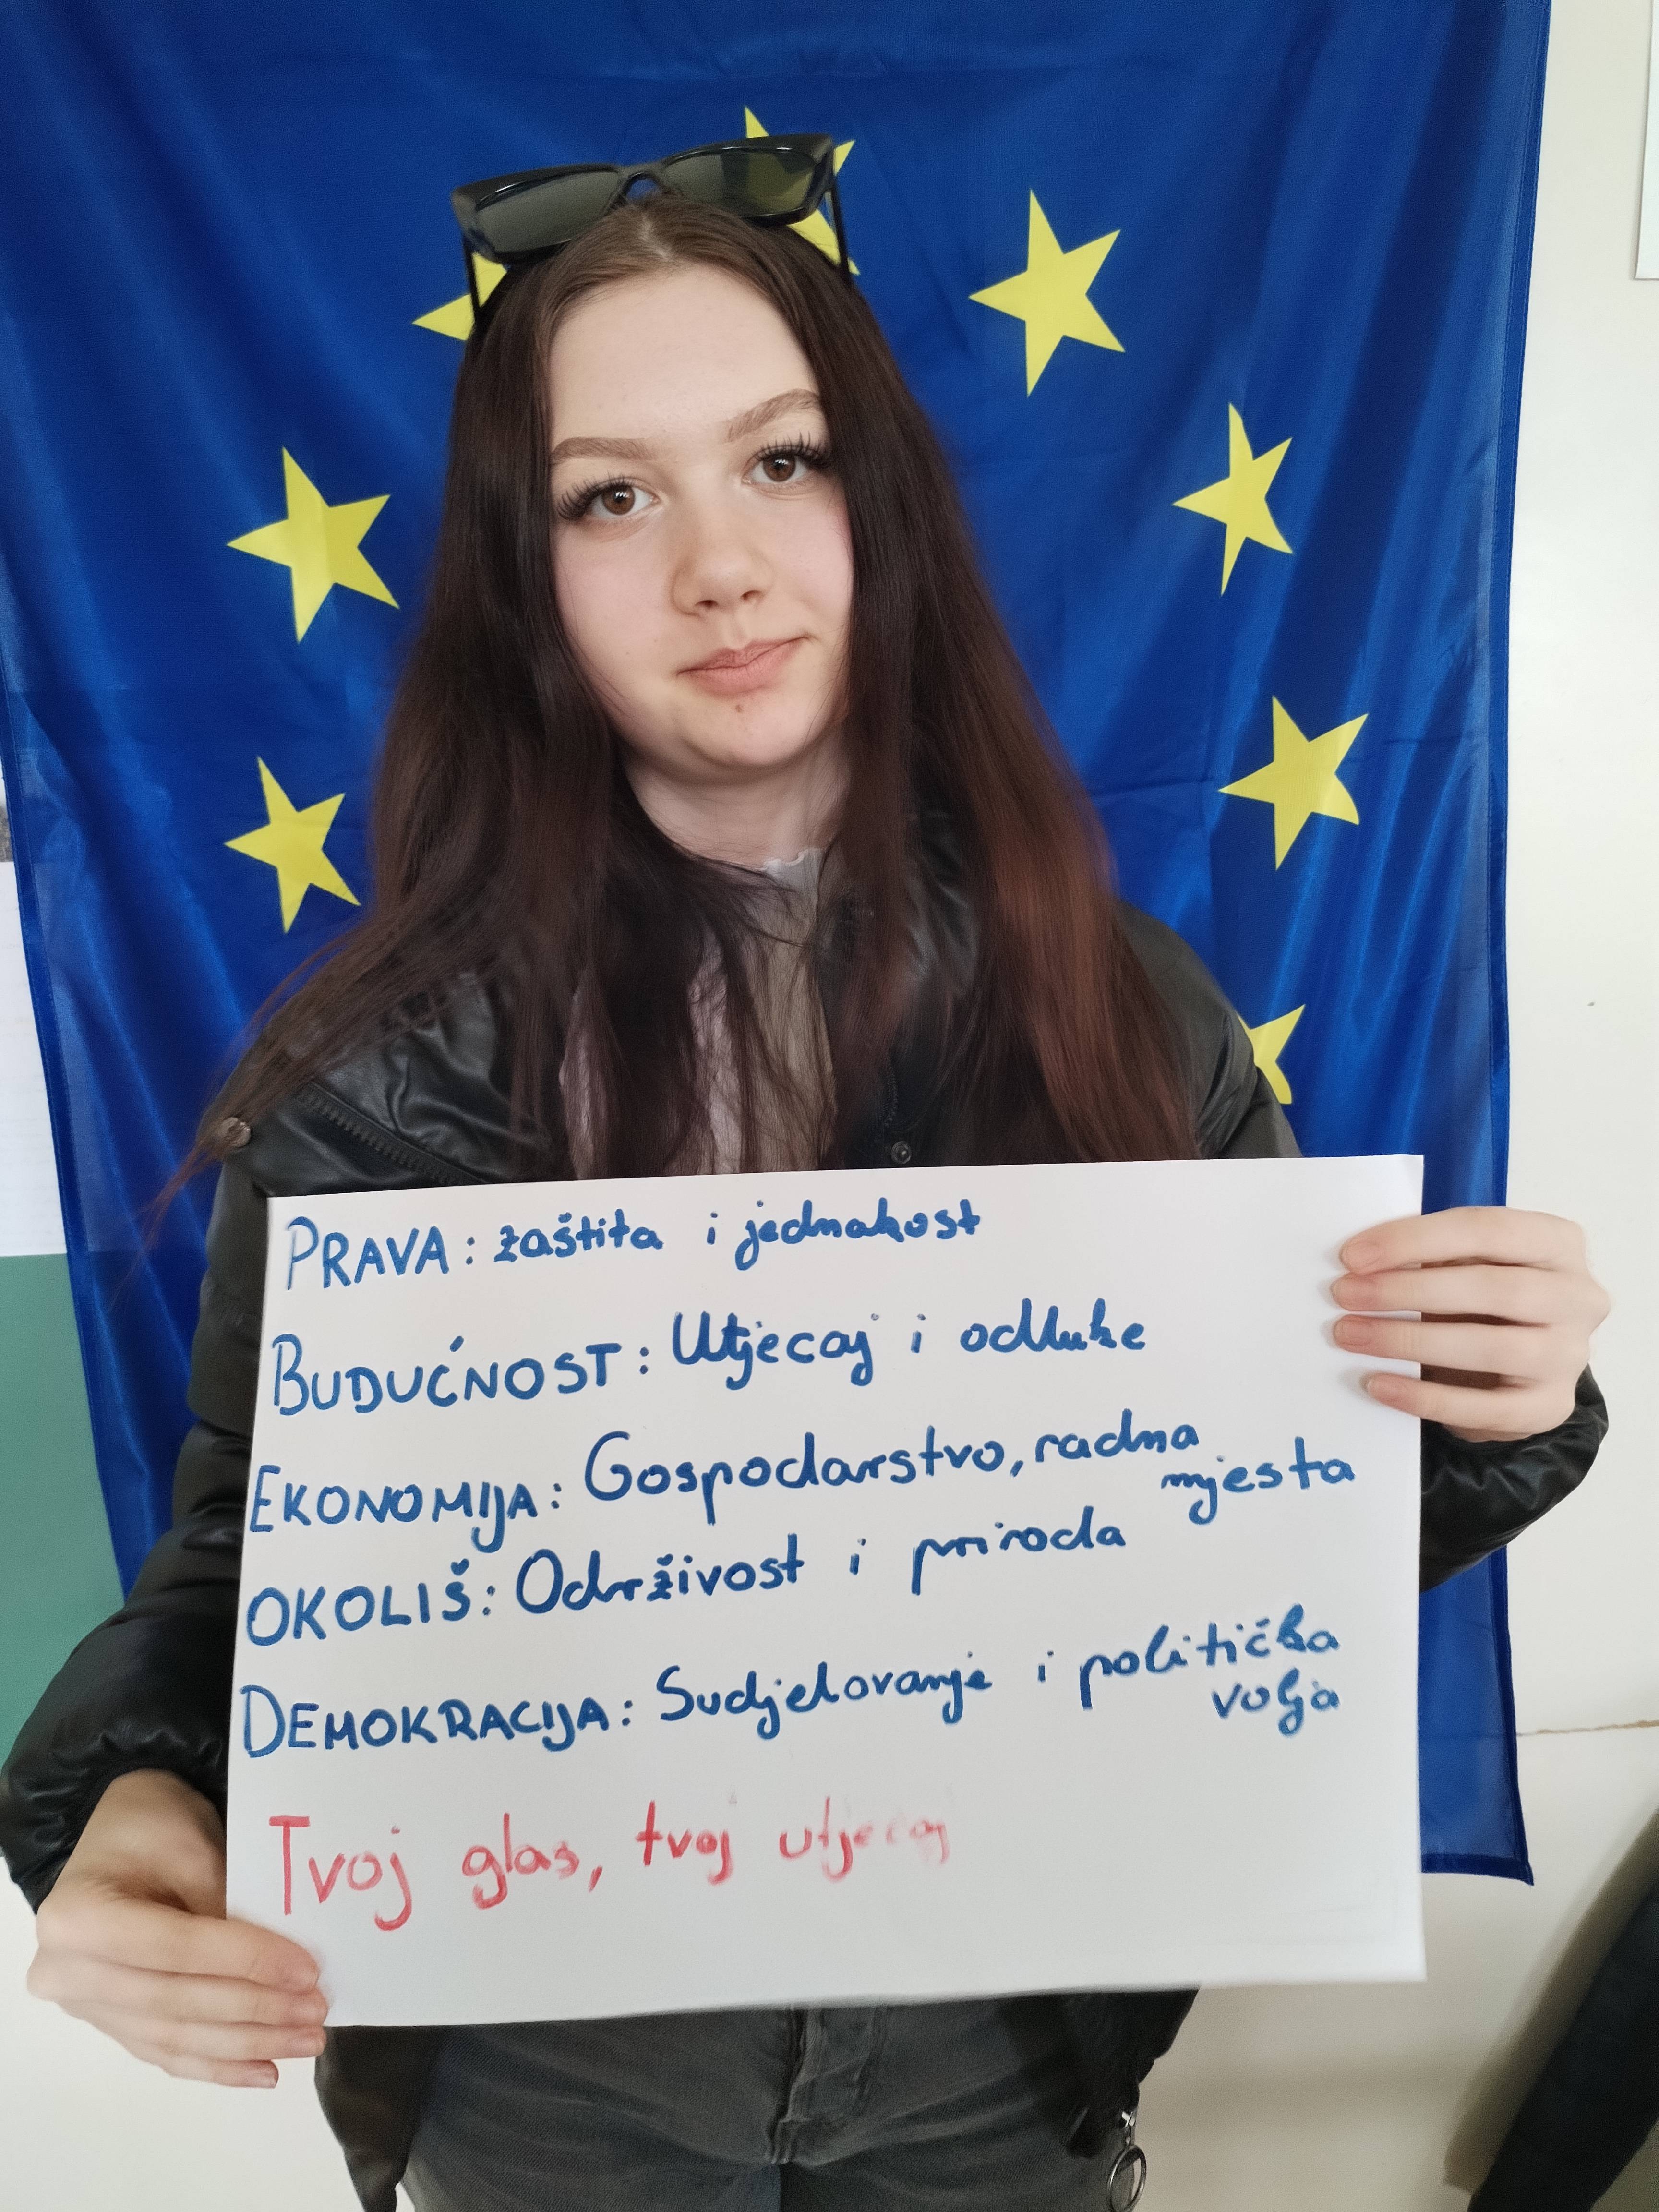 PRAVA: zaštita i jednakost
BUDUĆNOST: Utjecaj i odluke
EKONOMIJA: Gospodarstvo, radna
mjesta
OKOLIŠ: Održivost i priroda
DEMOKRACIJA: Sudjelovanje i politička
volja
Tvoj glas, tvoj utjecaj